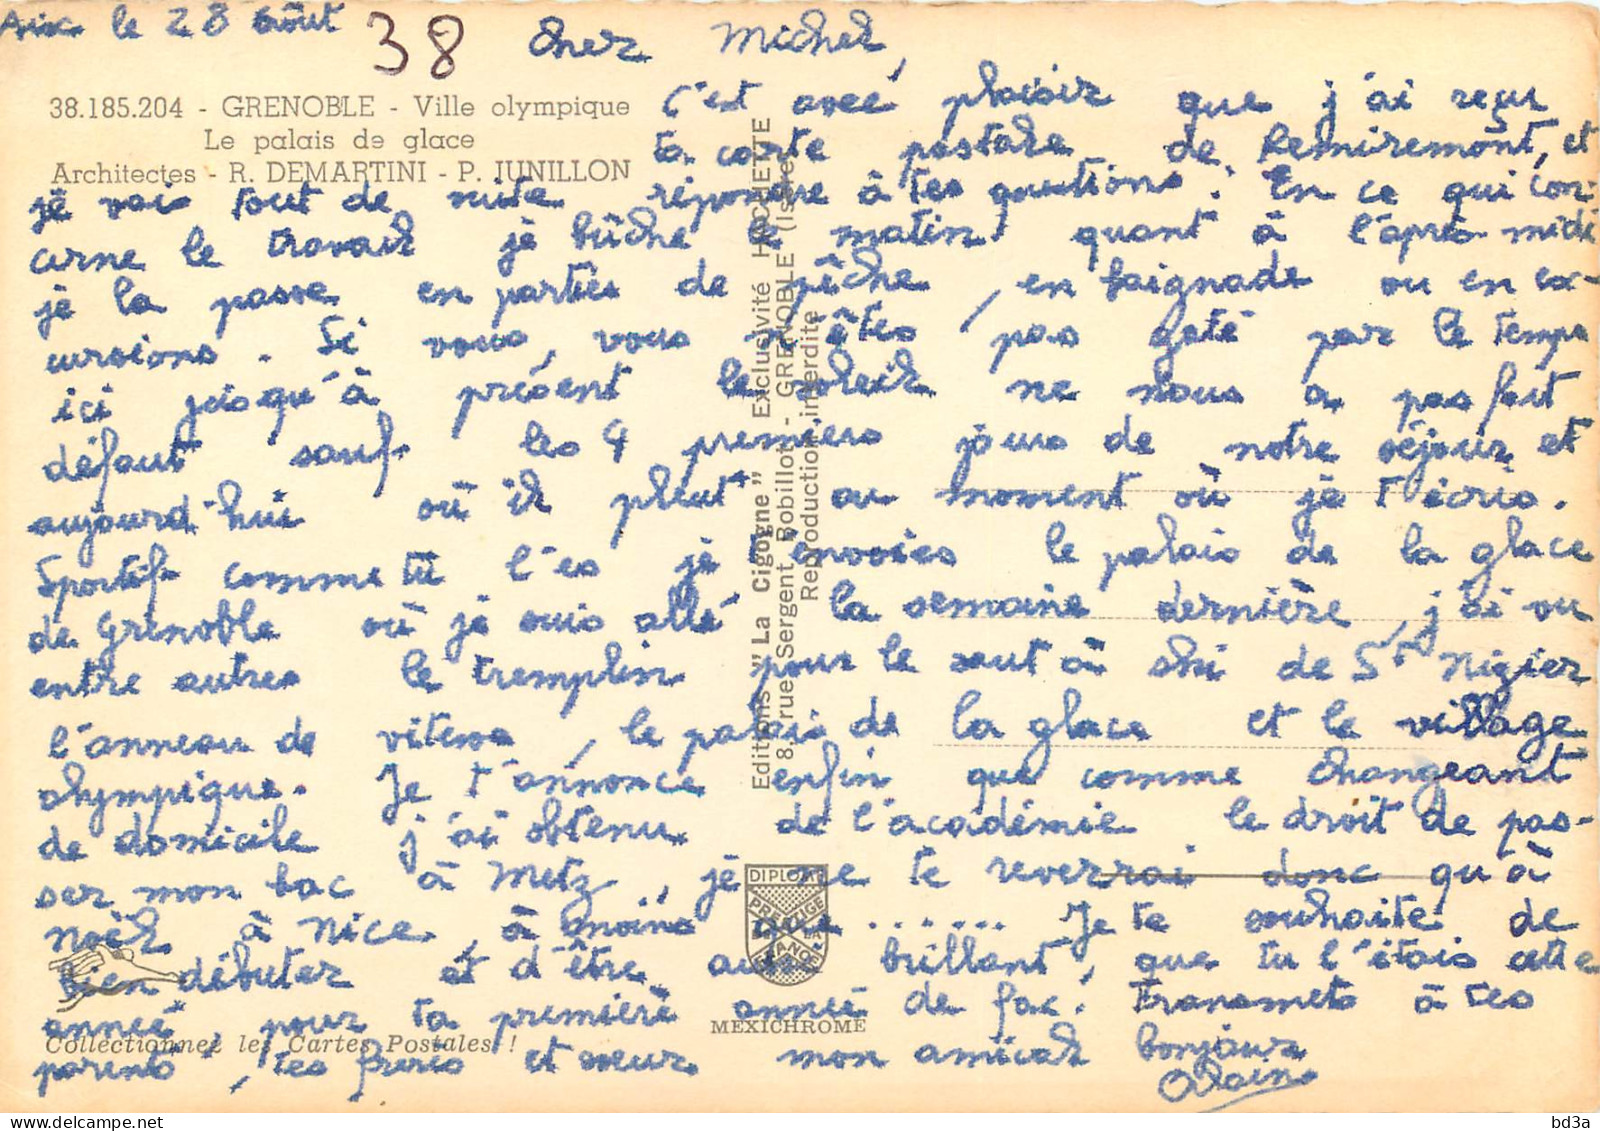 Aix le 28 août
38
Cher Michel,
38.185.204 - GRENOBLE - Ville olympique
Le palais de glace
Architectes - R. DEMARTINI - P. JUNILLON
C'est avec plaisir que j'ai reçu
ta carte postale de Remiremont, et
je vais tout de suite répondre à tes questions. En ce qui con-
cerne le travail je bûche le matin quant à l'après-midi
je la passe en parties de pêche, en baignade ou en ex-
cursions. Si vous, vous n'êtes pas gaté par le temps
ici jusqu'à présent le soleil ne nous a pas fait
défaut sauf les 4 premiers jours de notre séjour et
aujourd'hui où il pleut au moment où je t'écris.
Sportif comme tu l'es je t'envoies le palais de la glace
de Grenoble où je suis allé la semaine dernière, j'ai vu
entre autres le tremplin pour le saut à ski de St Nizier
l'anneau de vitesse, le palais de la glace et le village
olympique. Je t'annonce enfin que comme changeant
de domicile j'ai obtenu de l'académie le droit de pas-
ser mon bac à Metz, je ne te reverrai donc qu'à
Noël à Nice, à moins que....... Je te souhaite de
bien débuter et d'être aussi brillant, que tu l'étais cette
année, pour ta première année de fac. Transmets à tes
parents, tes frères et soeur mon amical bonjour
Alain
Editions "La Cigogne" Exclusivité HACHETTE
8, rue Sergent Bobillot - GRENOBLE (Isère)
Reproduction interdite
DIPLOME
PRESTIGE
DE LA
FRANCE
MEXICHROME
Collectionnez les Cartes Postales !
delcampe.net
bd3a